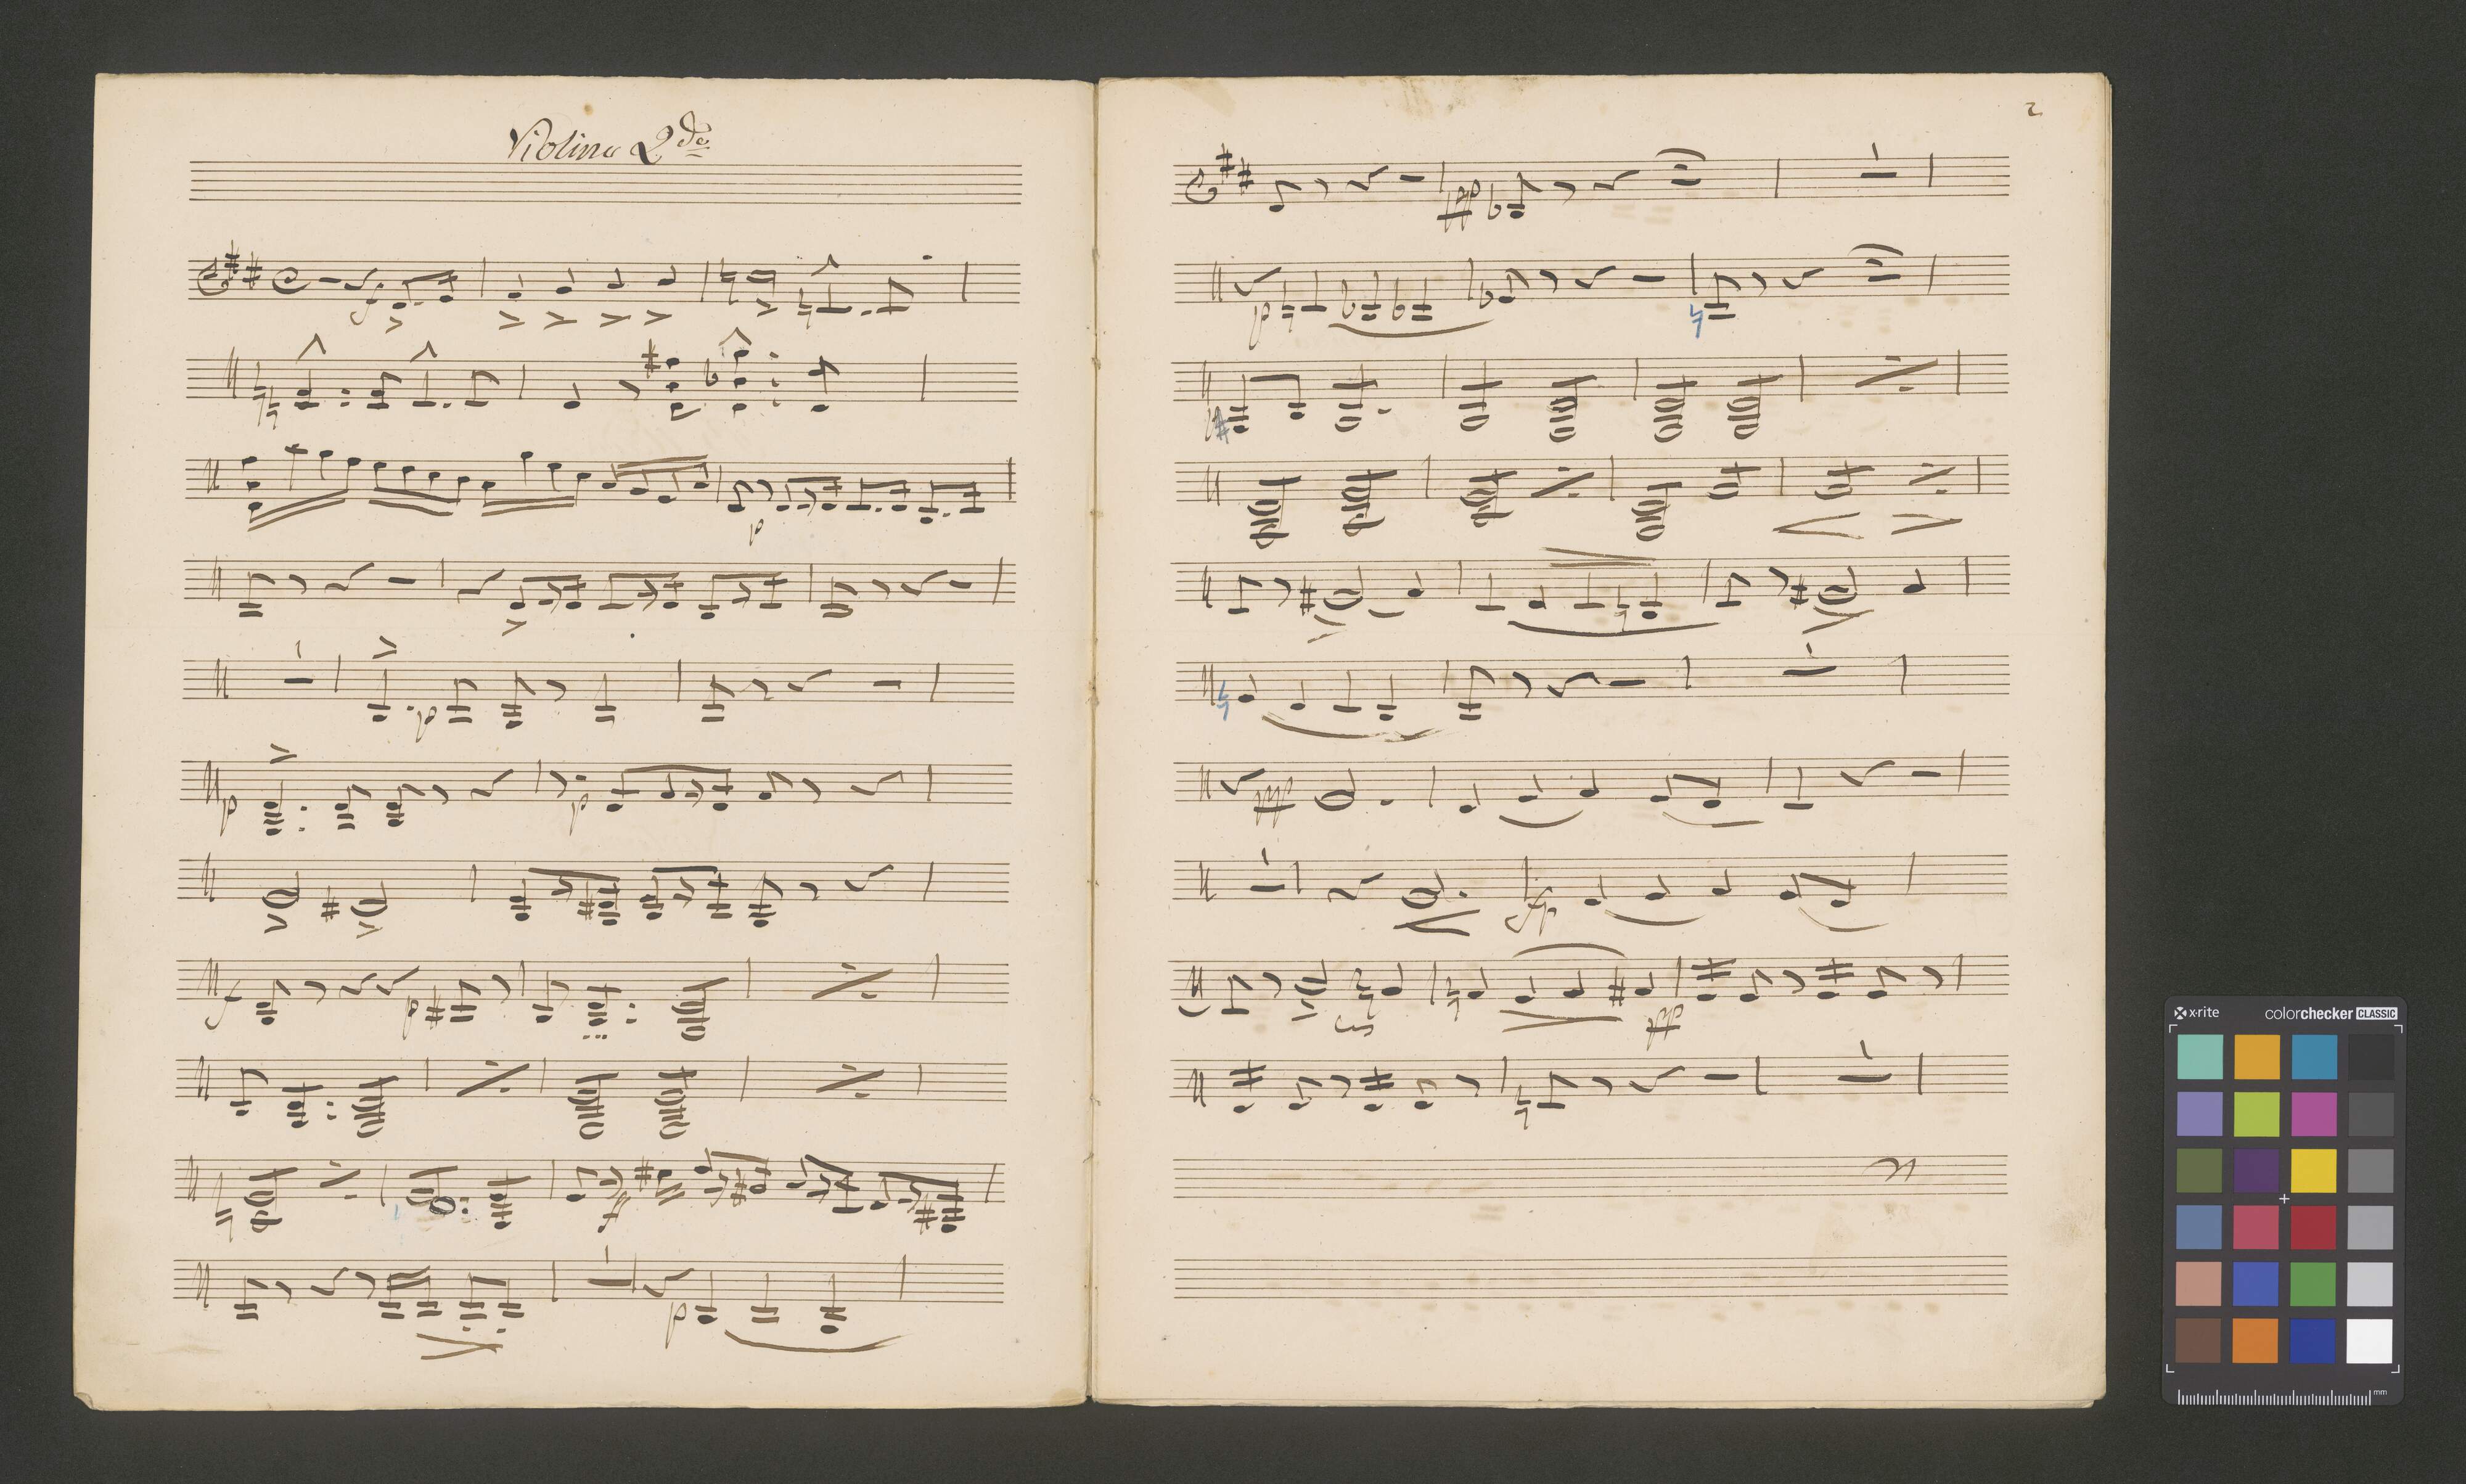 Violino 2do
f
p
p
p
p
f
p
ff
p
2
ppp
p
ppp
fp
pp
x-rite
colorchecker CLASSIC
mm